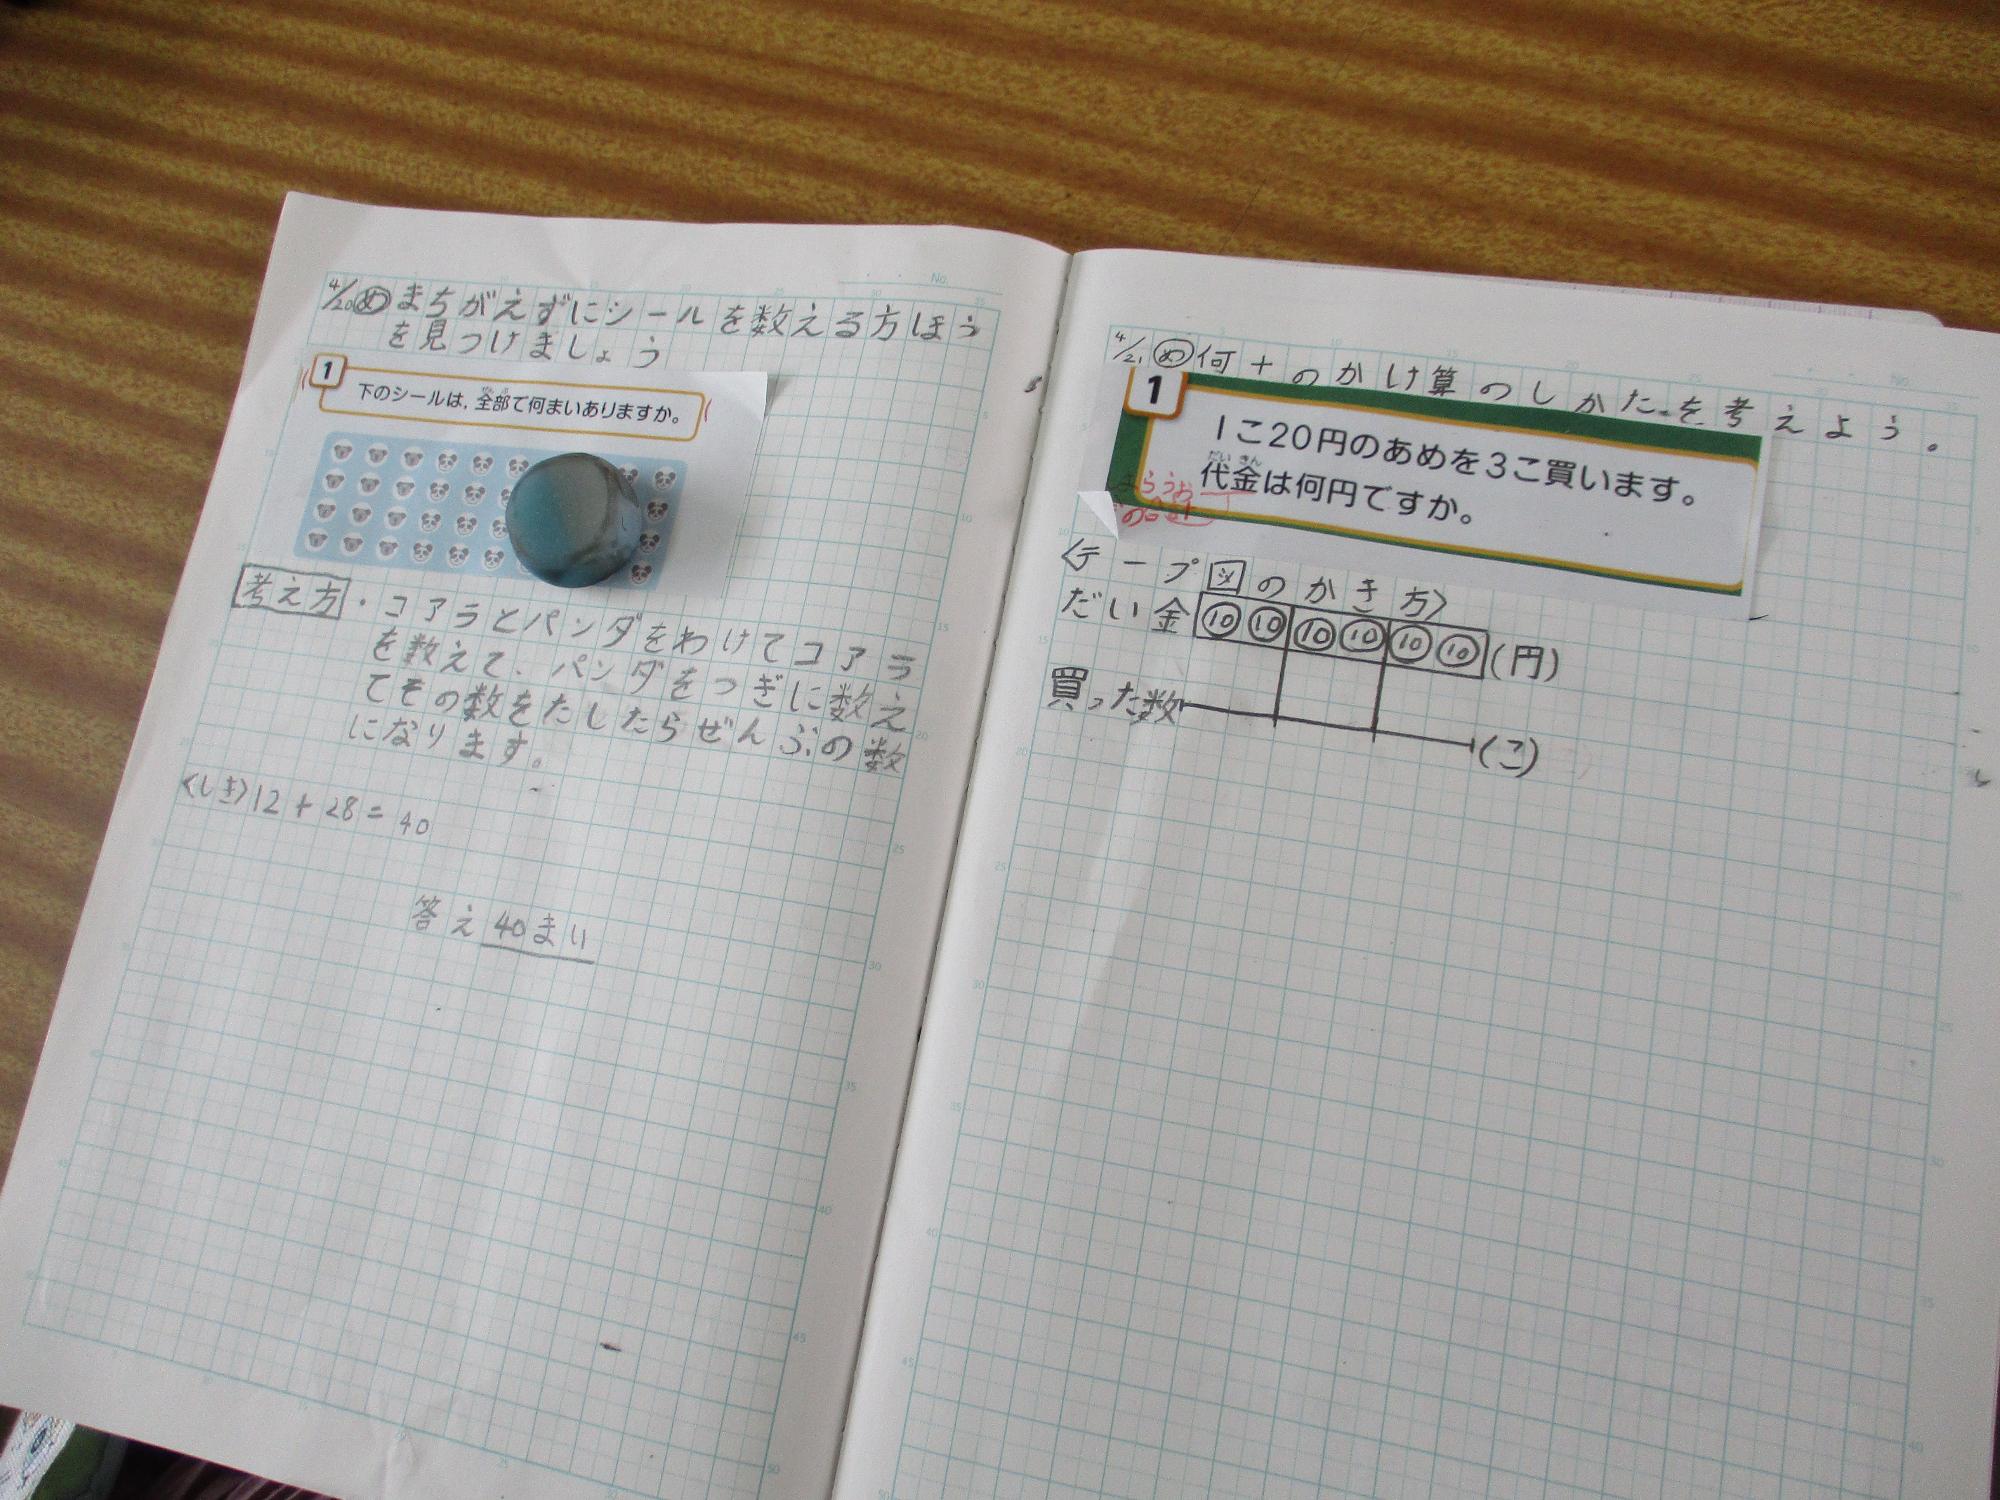 4/20 め まちがえずにシールを数える方ほう
を見つけましょう
1
下のシールは，全部で何まいありますか。
ぜんぶ
考え方・コアラとパンダをわけてコアラ
を数えて、パンダをつぎに数え
てその数をたしたらぜんぶの数
になります。
〈しき〉12+28=40
答え 40まい
4/21 め 何十のかけ算のしかたを考えよう。
1
1こ20円のあめを3こ買います。
だいきん
代金は何円ですか。
〈テープ図のかき方〉
だい金 10 10 10 10 10 10 (円)
買った数 (こ)